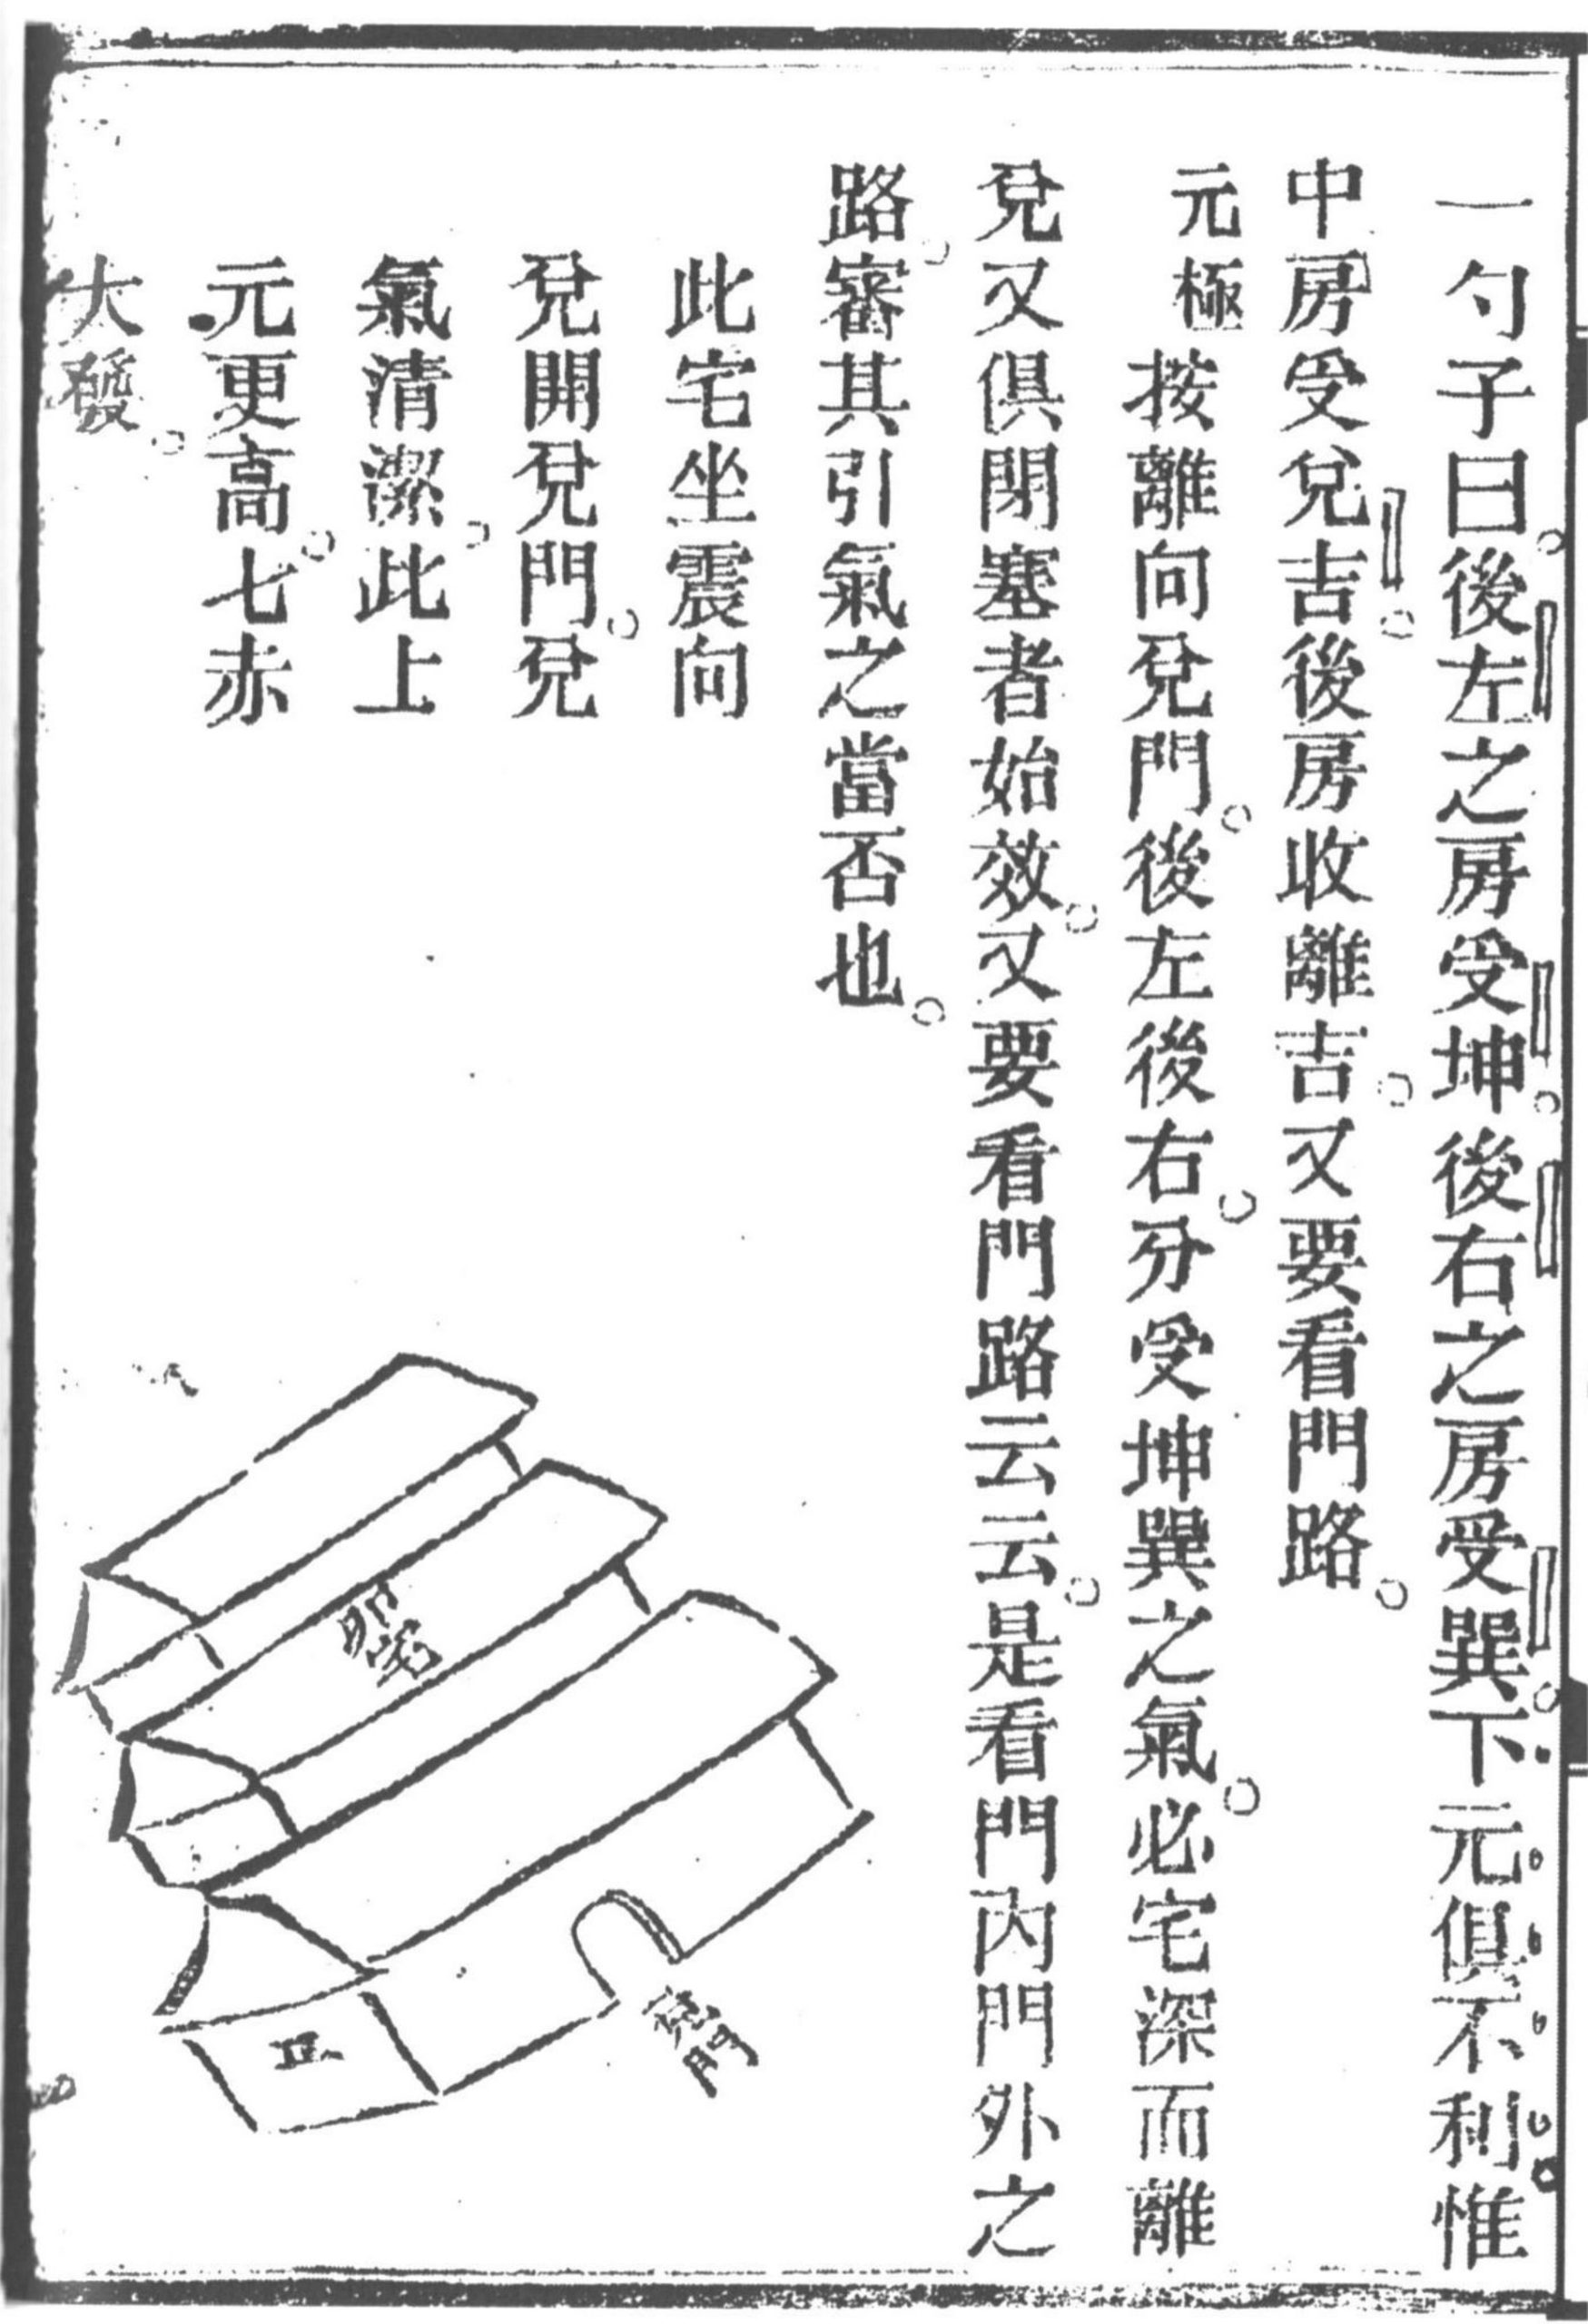 一勺子曰後左之房受坤後右之房受巽下元俱不利惟
中房受兌吉後房收離吉又要看門路
元極 按離向兌門後左後右分受坤巽之氣必宅深而離
兌又俱閉塞者始效又要看門路云云是看門內門外之
路審其引氣之當否也
此宅坐震向
兌開兌門兌
氣清潔此上
元更高七赤
大發
兌門